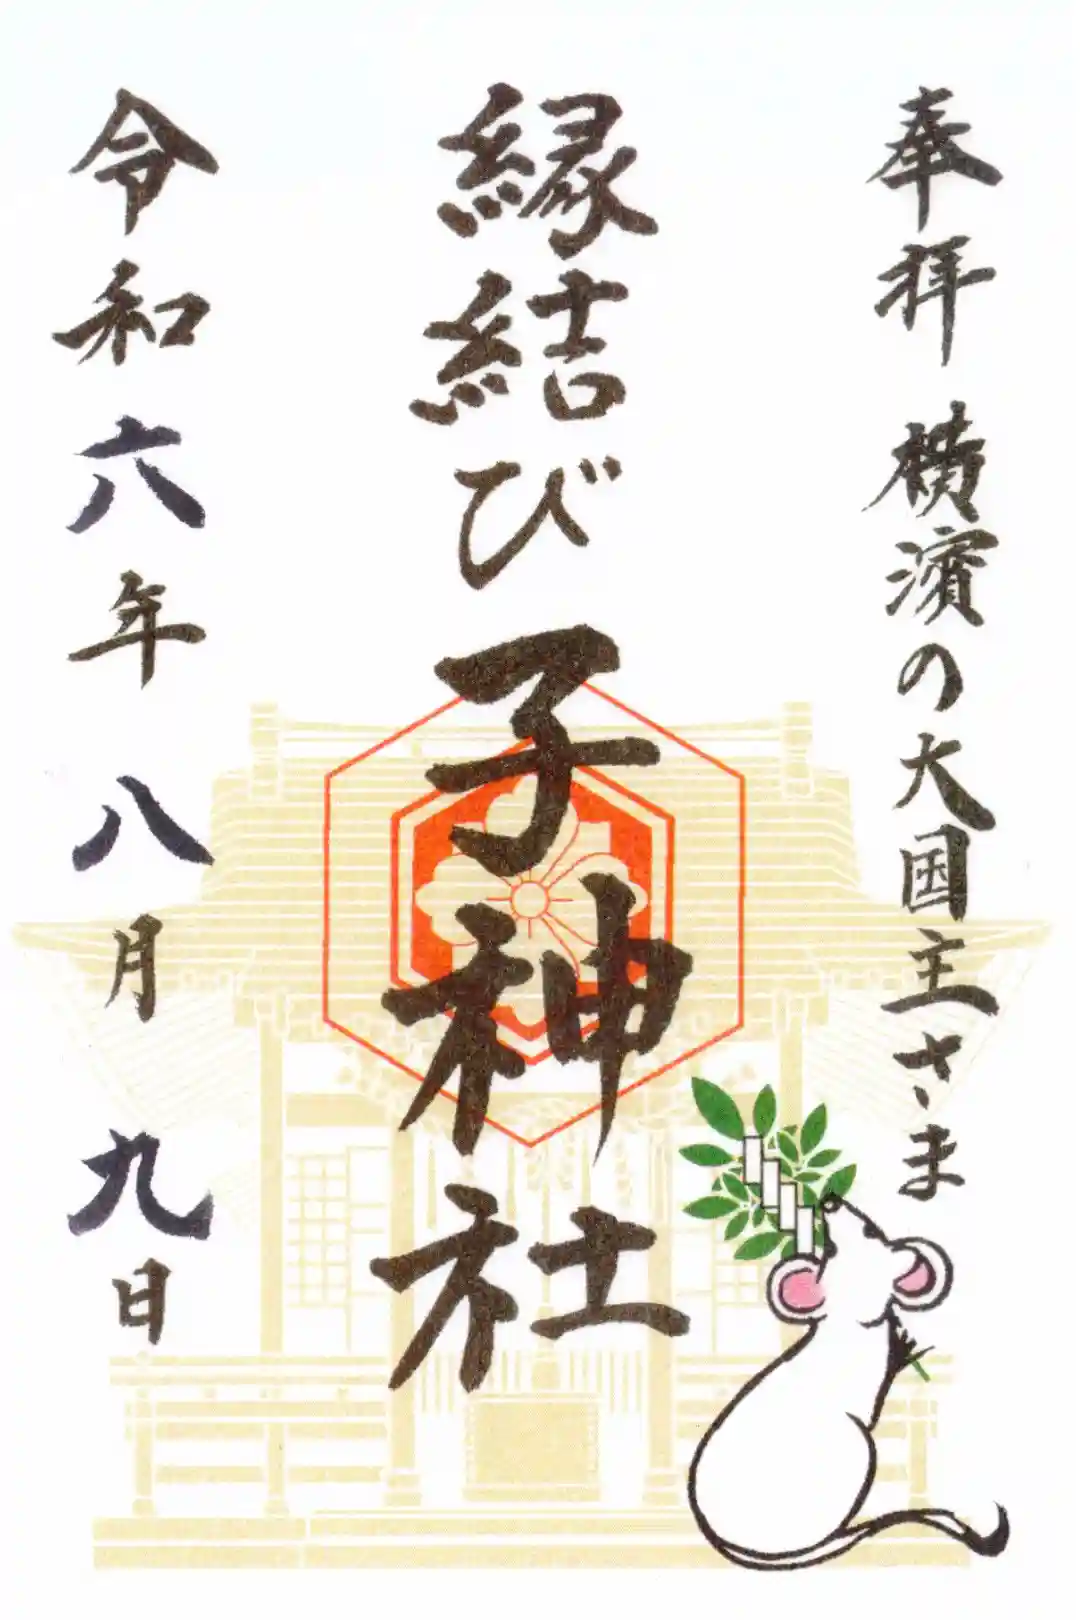 奉拝 横濱の大国主さま
縁結び 子神社
令和六年八月九日